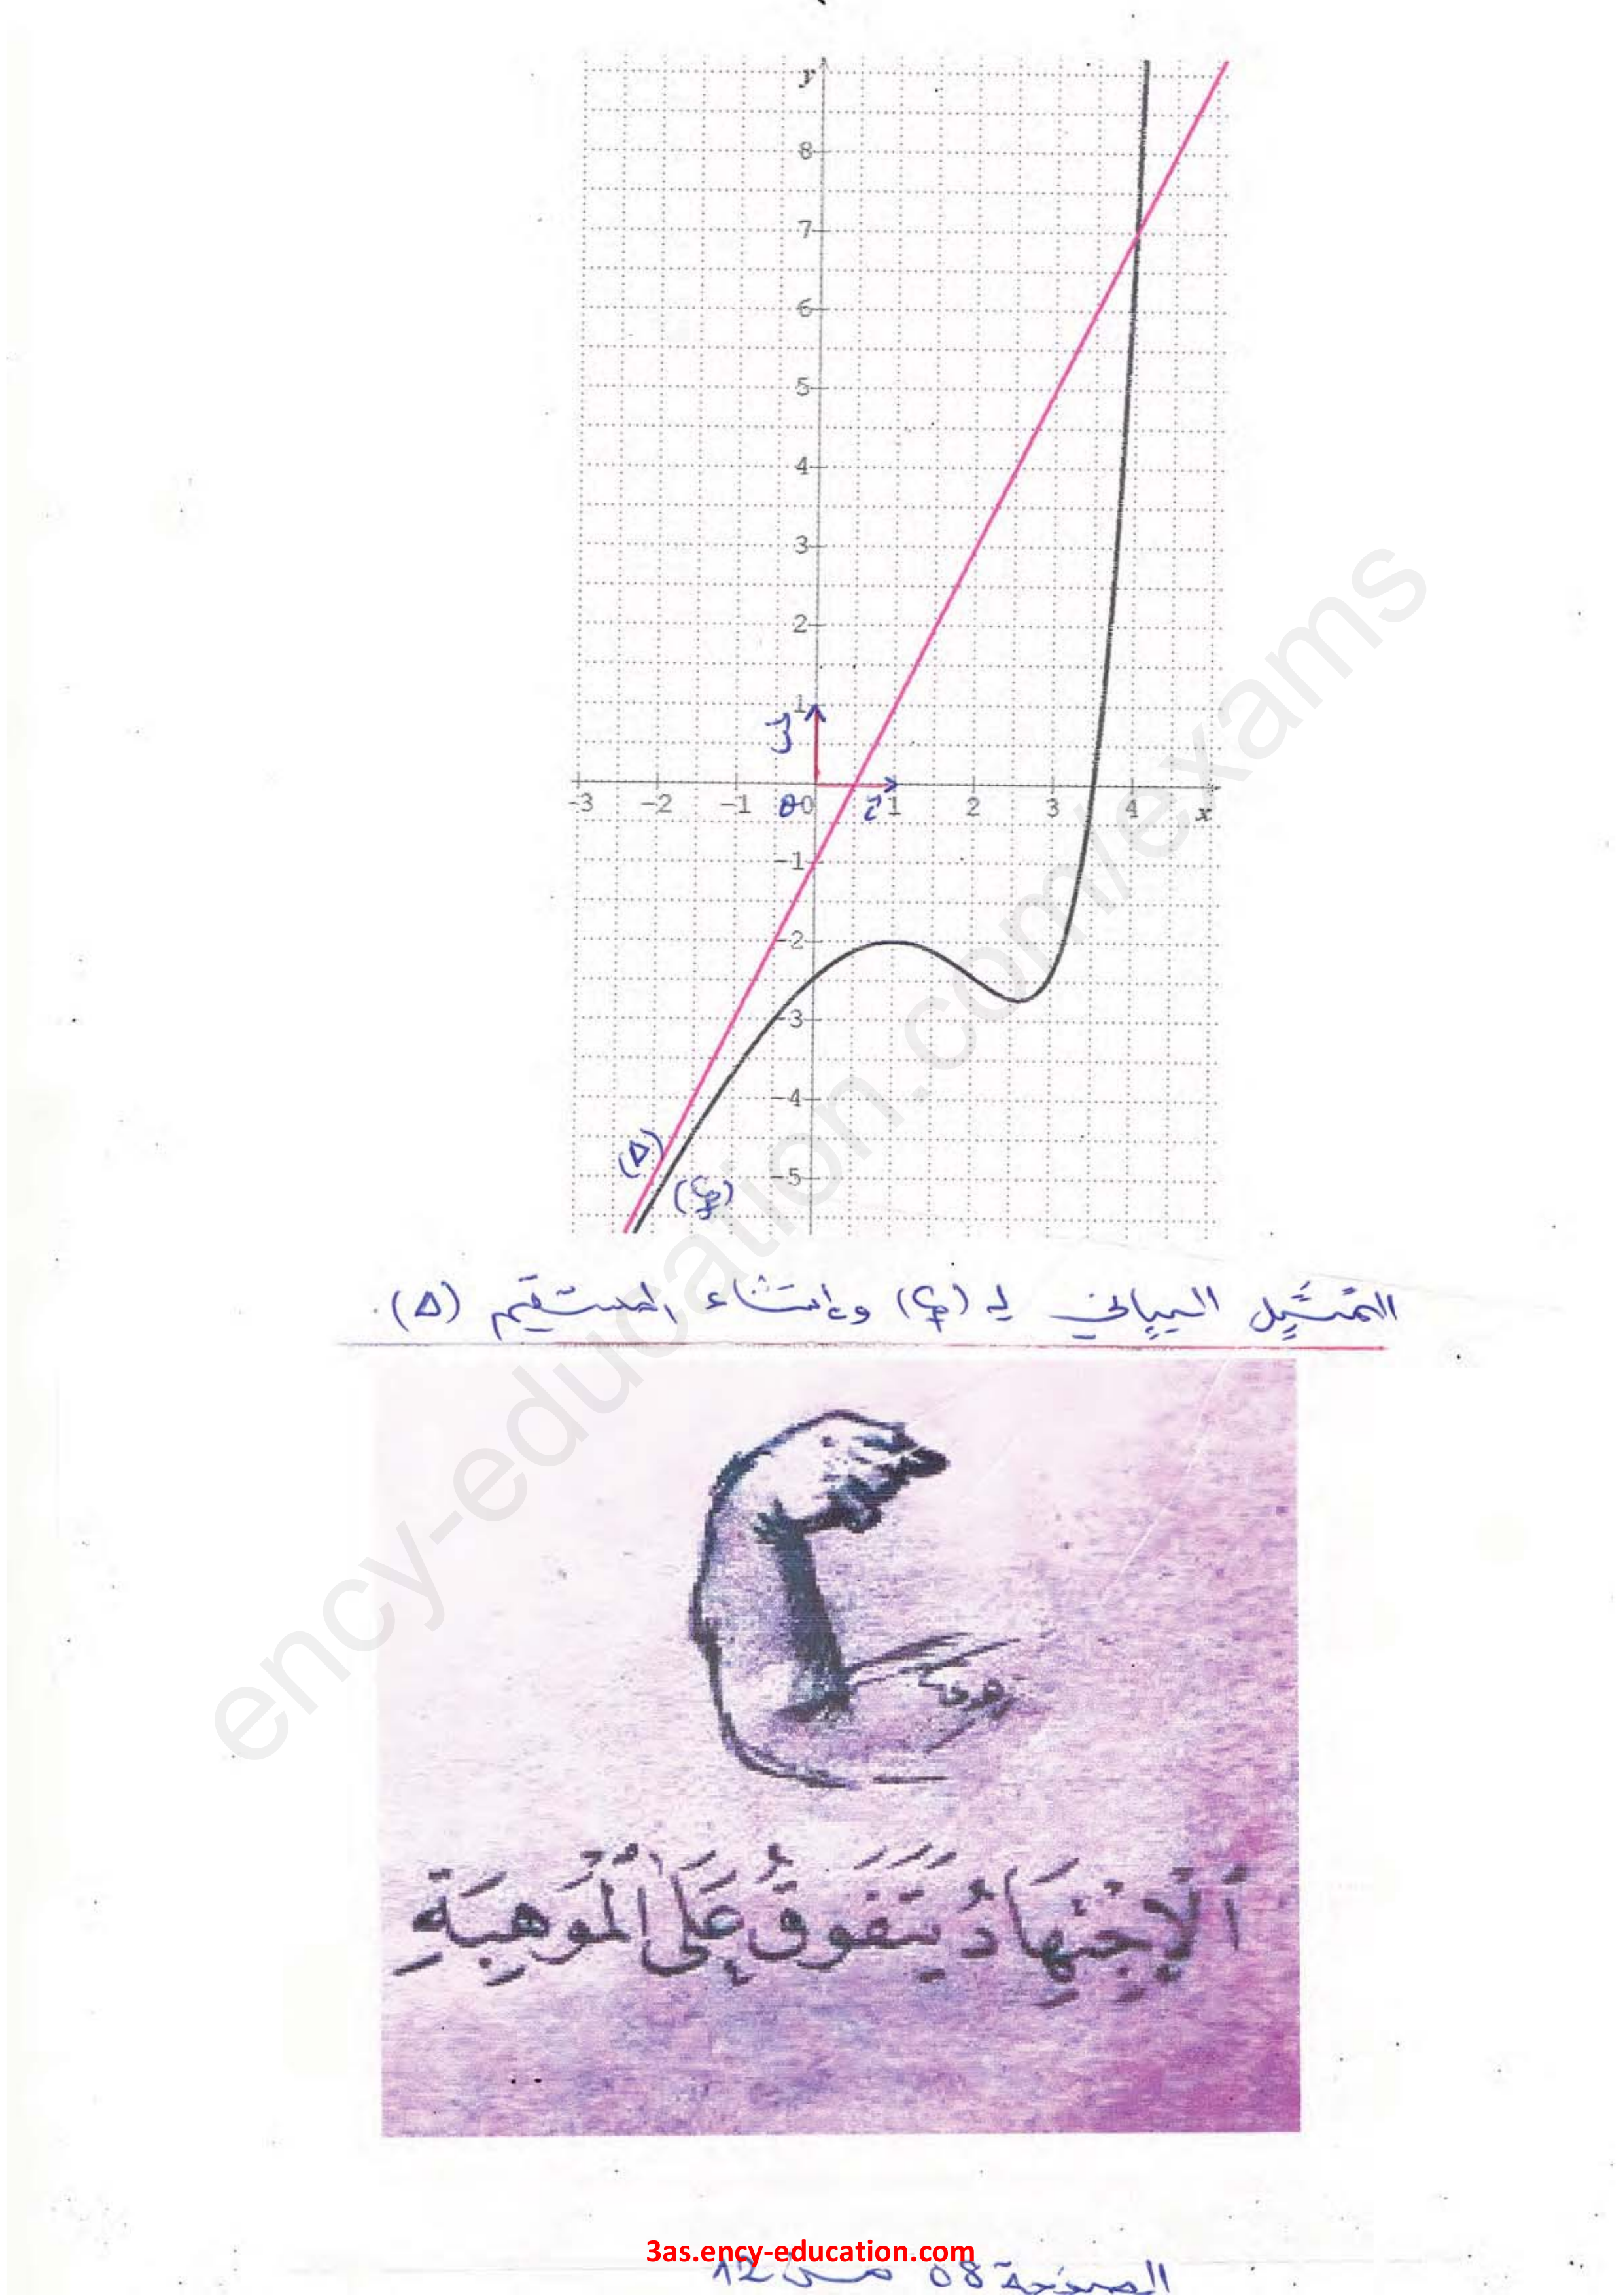 y
8
7
6
5
4
3
2
1
j
-3 -2 -1 0 i 1 2 3 4 x
-1
-2
-3
-4
(Δ)
-5
(Cf)
التمثيل البياني لـ (Cf) وإنشاء المستقيم (Δ).
اَلْإِجْتِهَادُ يَتَفَوَقُ عَلَى الْمَوْهِبَةِ
ency-education.com/exams
3as.ency-education.com
الصفحة 08 من 12